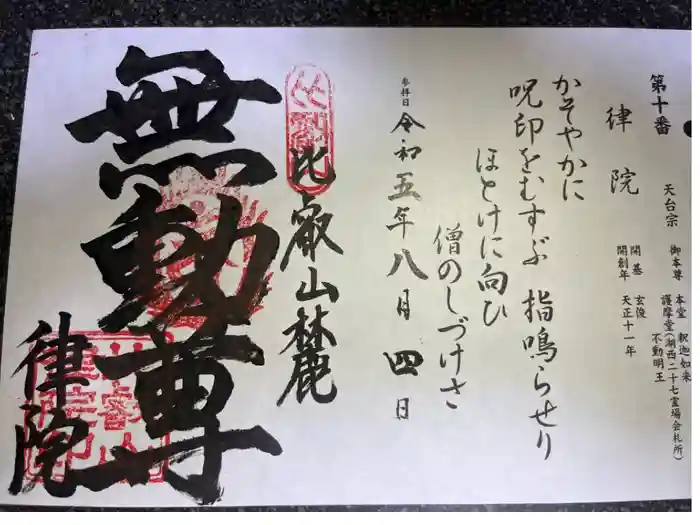 第十番
律院
天台宗
御本尊 本堂 釈迦如来
護摩堂(湖西二十七霊場会札所)
不動明王
開基 玄俊
開創年 天正十一年
かそやかに
呪印をむすぶ 指鳴らせり
ほとけに向ひ
僧のしづけさ
参拝日 令和五年八月四日
比叡山麓
無動尊
律院